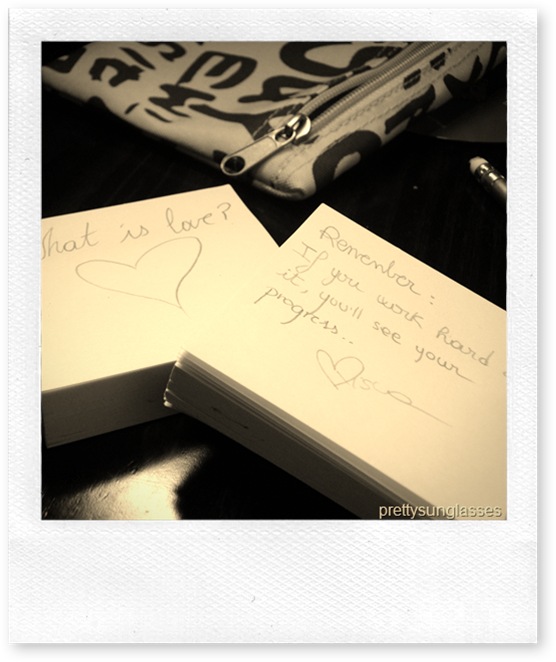 What is love?
Remember:
If you work hard
it, you'll see your
progress..
prettysunglasses